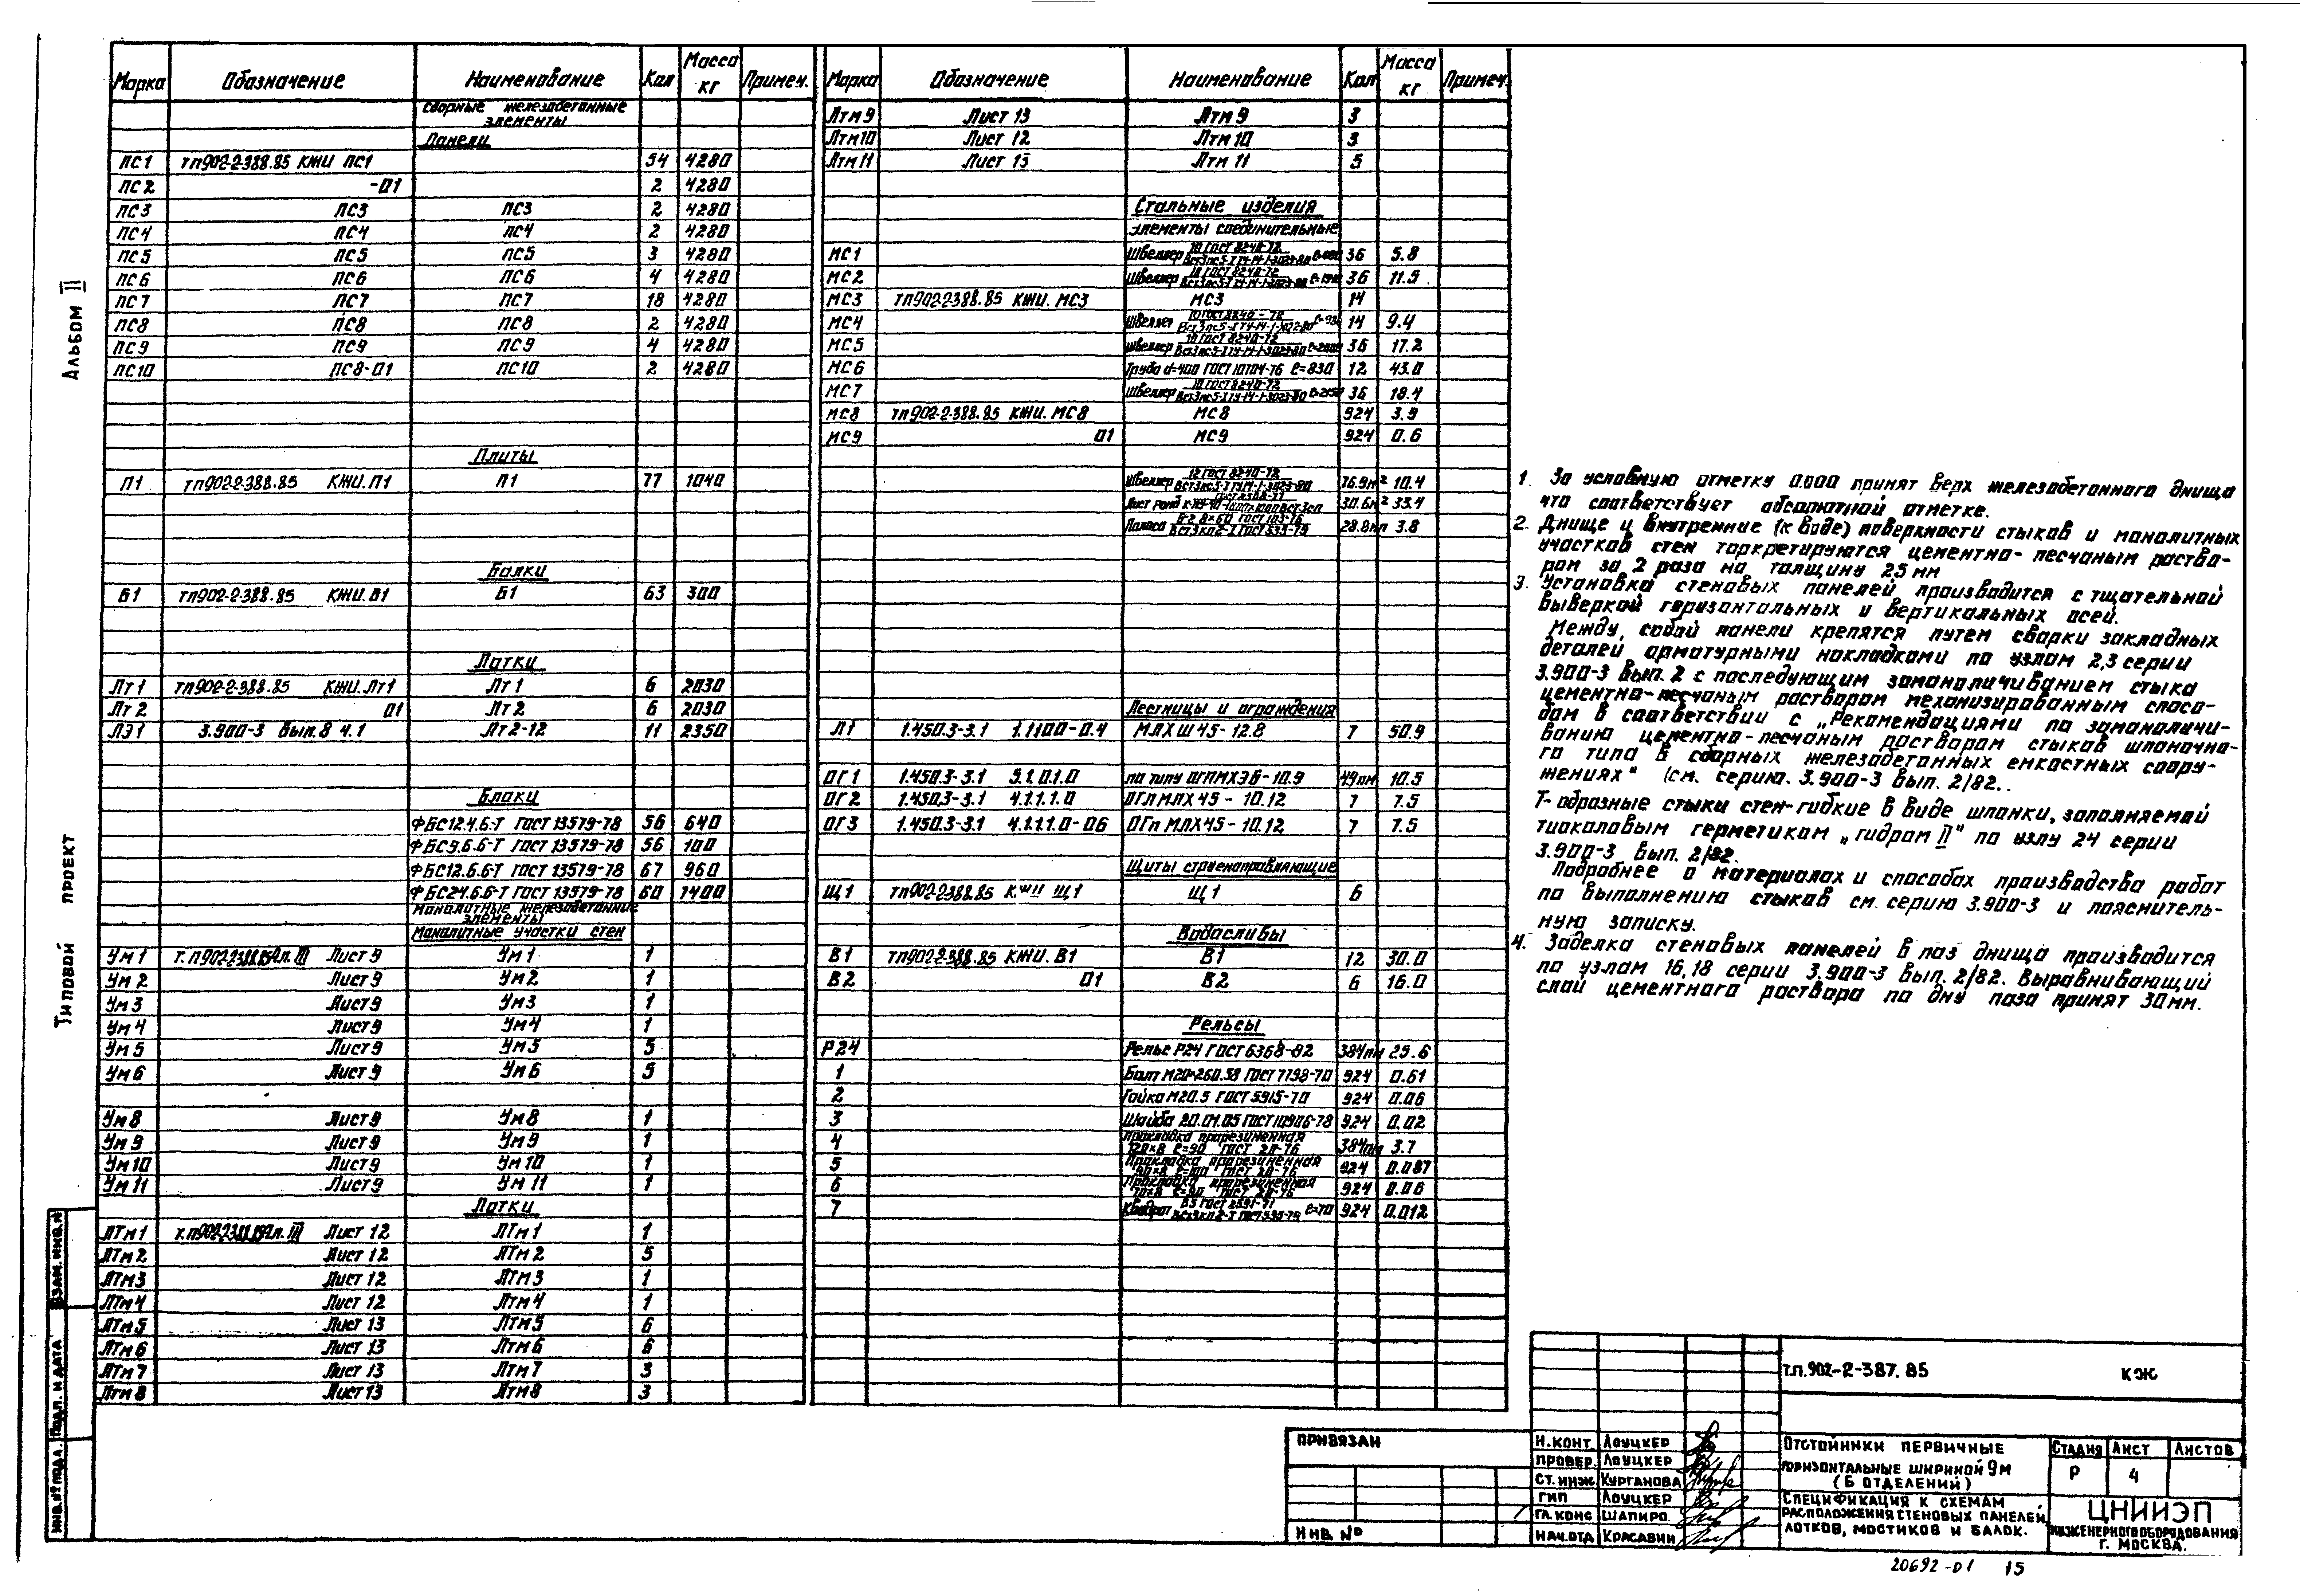 Альбом II
Типовой проект
Марка Обозначение Наименование Кол Масса кг Примеч.
Сборные железобетонные элементы
Панели
ПС1 ТП902-2-388.85 КЖИ ПС1 54 4280
ПС2 -01 2 4280
ПС3 ПС3 ПС3 2 4280
ПС4 ПС4 ПС4 2 4280
ПС5 ПС5 ПС5 3 4280
ПС6 ПС6 ПС6 4 4280
ПС7 ПС7 ПС7 18 4280
ПС8 ПС8 ПС8 2 4280
ПС9 ПС9 ПС9 4 4280
ПС10 ПС8-01 ПС10 2 4280
Плиты
П1 ТП902-2-388.85 КЖИ.П1 П1 77 1040
Балки
Б1 ТП902-2-388.85 КЖИ.Б1 Б1 63 300
Лотки
Лт1 ТП902-2-388.85 КЖИ.Лт1 Лт1 6 2030
Лт2 01 Лт2 6 2030
ЛЭ1 3.900-3 Вып.8 ч.1 Лт2-12 11 2350
Блоки
ФБС12.4.6-Т ГОСТ 13579-78 56 640
ФБС9.6.6-Т ГОСТ 13579-78 56 100
ФБС12.6.6-Т ГОСТ 13579-78 67 960
ФБС24.6.6-Т ГОСТ 13579-78 60 1400
Монолитные железобетонные элементы
Монолитные участки стен
Ум1 Лист 9 Ум1 1
Ум2 Лист 9 Ум2 1
Ум3 Лист 9 Ум3 1
Ум4 Лист 9 Ум4 1
Ум5 Лист 9 Ум5 5
Ум6 Лист 9 Ум6 5
Ум8 Лист 9 Ум8 1
Ум9 Лист 9 Ум9 1
Ум10 Лист 9 Ум10 1
Ум11 Лист 9 Ум11 1
Лотки
ЛТм1 Лист 12 ЛТм1 1
ЛТм2 Лист 12 ЛТм2 5
ЛТм3 Лист 12 ЛТм3 1
ЛТм4 Лист 12 ЛТм4 1
ЛТм5 Лист 13 ЛТм5 6
ЛТм6 Лист 13 ЛТм6 6
ЛТм7 Лист 13 ЛТм7 3
ЛТм8 Лист 13 ЛТм8 3
Марка Обозначение Наименование Кол Масса кг Примеч.
Лтм9 Лист 13 Лтм 9 3
Лтм10 Лист 12 Лтм 10 3
Лтм11 Лист 13 Лтм 11 5
Стальные изделия
Элементы соединительные
МС1 Швеллер 10 ГОСТ 8240-72 36 5.8
МС2 Швеллер 10 ГОСТ 8240-72 36 11.5
МС3 ТП902-2-388.85 КЖИ.МС3 МС3 14
МС4 Швеллер 10 ГОСТ 8240-72 14 9.4
МС5 Швеллер 10 ГОСТ 8240-72 36 17.2
МС6 Труба d=400 ГОСТ 10704-76 ℓ=830 12 43.0
МС7 Швеллер 10 ГОСТ 8240-72 36 18.4
МС8 ТП902-2-388.85 КЖИ.МС8 МС8 924 3.9
МС9 01 МС9 924 0.6
Швеллер 12 ГОСТ 8240-72 10.4
30.6м² 33.4
Полоса 28.8мп 3.8
Лестницы и ограждения
Л1 1.450.3-3.1 1.1100-0.4 МЛХШ45-12.8 7 50.9
ОГ1 1.450.3-3.1 5.1.0.1.0 по типу ОГПМХЭ6-10.9 49пм 10.5
ОГ2 1.450.3-3.1 4.1.1.1.0 ОГпМЛХ45-10.12 7 7.5
ОГ3 1.450.3-3.1 4.1.1.1.0-06 ОГпМЛХ45-10.12 7 7.5
Щиты струенаправляющие
Щ1 ТП902-2-388.85 КЖИ Щ1 Щ1 6
Водосливы
В1 ТП902-2-388.85 КЖИ.В1 В1 12 30.0
В2 01 В2 6 16.0
Рельсы
Р24 Рельс Р24 ГОСТ 6368-82 384пм 25.6
1 Болт М20×260.58 ГОСТ 7798-70 924 0.61
2 Гайка М20.5 ГОСТ 5915-70 924 0.06
3 Шайба 20.01.05 ГОСТ 10906-78 924 0.02
4 Прокладка прорезиненная 384пм 3.7
5 Прокладка прорезиненная 924 0.087
6 Прокладка прорезиненная 924 0.06
7 Квадрат 924 0.012
1. За условную отметку 0.000 принят верх железобетонного днища
что соответствует абсолютной отметке.
2. Днище и внутренние (к воде) поверхности стыков и монолитных
участков стен торкретируются цементно-песчаным раство-
ром за 2 раза на толщину 25 мм
3. Установка стеновых панелей производится с тщательной
выверкой горизонтальных и вертикальных осей.
Между собой панели крепятся путем сварки закладных
деталей арматурными накладками по узлам 2,3 серии
3.900-3 вып. 2 с последующим замоноличиванием стыка
цементно-песчаным раствором механизированным спосо-
бом в соответствии с „Рекомендациями по замоноличи-
ванию цементно-песчаным раствором стыков шпоночно-
го типа в сборных железобетонных емкостных соору-
жениях" (см. серию. 3.900-3 вып. 2/82..
Т-образные стыки стен-гибкие в виде шпонки, заполняемой
тиоколовым герметиком „гидром II" по узлу 24 серии
3.900-3 вып. 2/82.
Подробнее о материалах и способах производства работ
по выполнению стыков см. серию 3.900-3 и пояснитель-
ную записку.
4. Заделка стеновых панелей в паз днища производится
по узлам 16,18 серии 3.900-3 вып. 2/82. Выравнивающий
слой цементного раствора по дну паза принят 30мм.
Инв. № подл. Подп. и дата Взам. инв. №
Привязан
Инв №
Н.конт Лоуцкер
Провер. Лоуцкер
Ст. инж Курганова
ГИП Лоуцкер
Гл. конс Шапиро
Нач.отд Красавин
Т.П. 902-2-387.85 КЖ
Отстойники первичные
горизонтальные шириной 9м
(6 отделений)
Стадия Лист Листов
Р 4
Спецификация к схемам
расположения стеновых панелей,
лотков, мостиков и балок.
ЦНИИЭП
инженерного оборудования
г. Москва.
20692-01 15